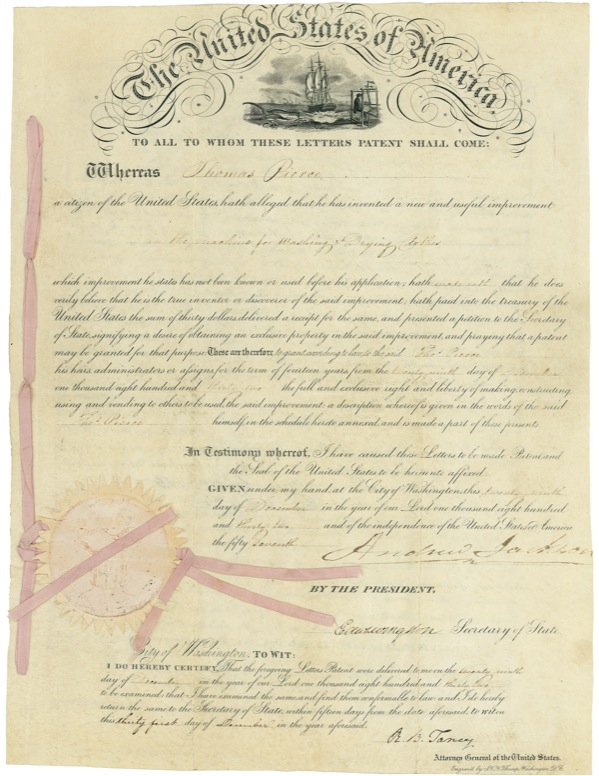 The United States of America
TO ALL TO WHOM THESE LETTERS PATENT SHALL COME:
Whereas Thomas Pierce
a citizen of the United States, hath alleged that he has invented a new and useful improvement
in the machine for Washing & Drying clothes
which improvement he states has not been known or used before his application; hath made oath that he does
verily believe that he is the true inventor or discoverer of the said improvement; hath paid into the treasury of the
United States the sum of thirty dollars delivered a receipt for the same, and presented a petition to the Secretary
of State, signifying a desire of obtaining an exclusive property in the said improvement, and praying that a patent
may be granted for that purpose. These are therefore to grant according to law to the said Thos. Pierce
his heirs, administrators or assigns for the term of fourteen years from the twenty ninth day of December
one thousand eight hundred and thirty two the full and exclusive right and liberty of making, constructing
using and vending to others to be used, the said improvement; a description whereof is given in the words of the said
Thos. Pierce himself in the schedule hereto annexed, and is made a part of these presents
In Testimony whereof, I have caused these Letters to be made Patent, and
the Seal of the United States to be hereunto affixed.
GIVEN under my hand, at the City of Washington, this twenty ninth
day of December in the year of our Lord one thousand eight hundred
and thirty two and of the independence of the United States of America
the fifty Seventh
Andrew Jackson
BY THE PRESIDENT,
Edw Livingston Secretary of State
City of Washington, TO WIT:
I DO HEREBY CERTIFY, That the foregoing Letters Patent were delivered to me on the twenty ninth
day of December in the year of our Lord one thousand eight hundred and thirty Two
to be examined; that I have examined the same, and find them conformable to law; and I do hereby
return the same to the Secretary of State, within fifteen days from the date aforesaid, to wit: on
this thirty first day of December in the year aforesaid.
R. B. Taney
Attorney General of the United States.